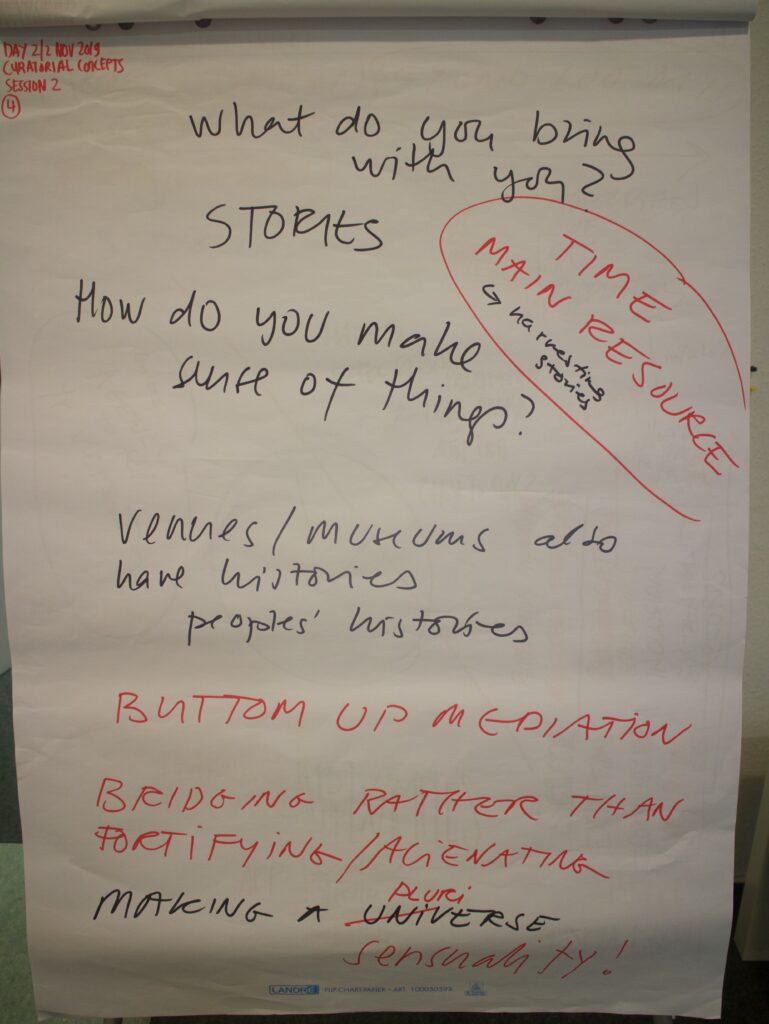 DAY 2/2 NOV 2019
CURATORIAL CONCEPTS
SESSION 2
4
What do you bring
with you?
STORIES
TIME
MAIN RESOURCE
↳ harvesting
stories
How do you make
sense of things?
Venues/museums also
have histories
peoples' histories
BUTTOM UP MEDIATION
BRIDGING RATHER THAN
FORTIFYING/ALIENATING
PLURI
MAKING A UNIVERSE
sensuality!
LANDRE FLIP-CHART-PAPIER • ART. 100050593